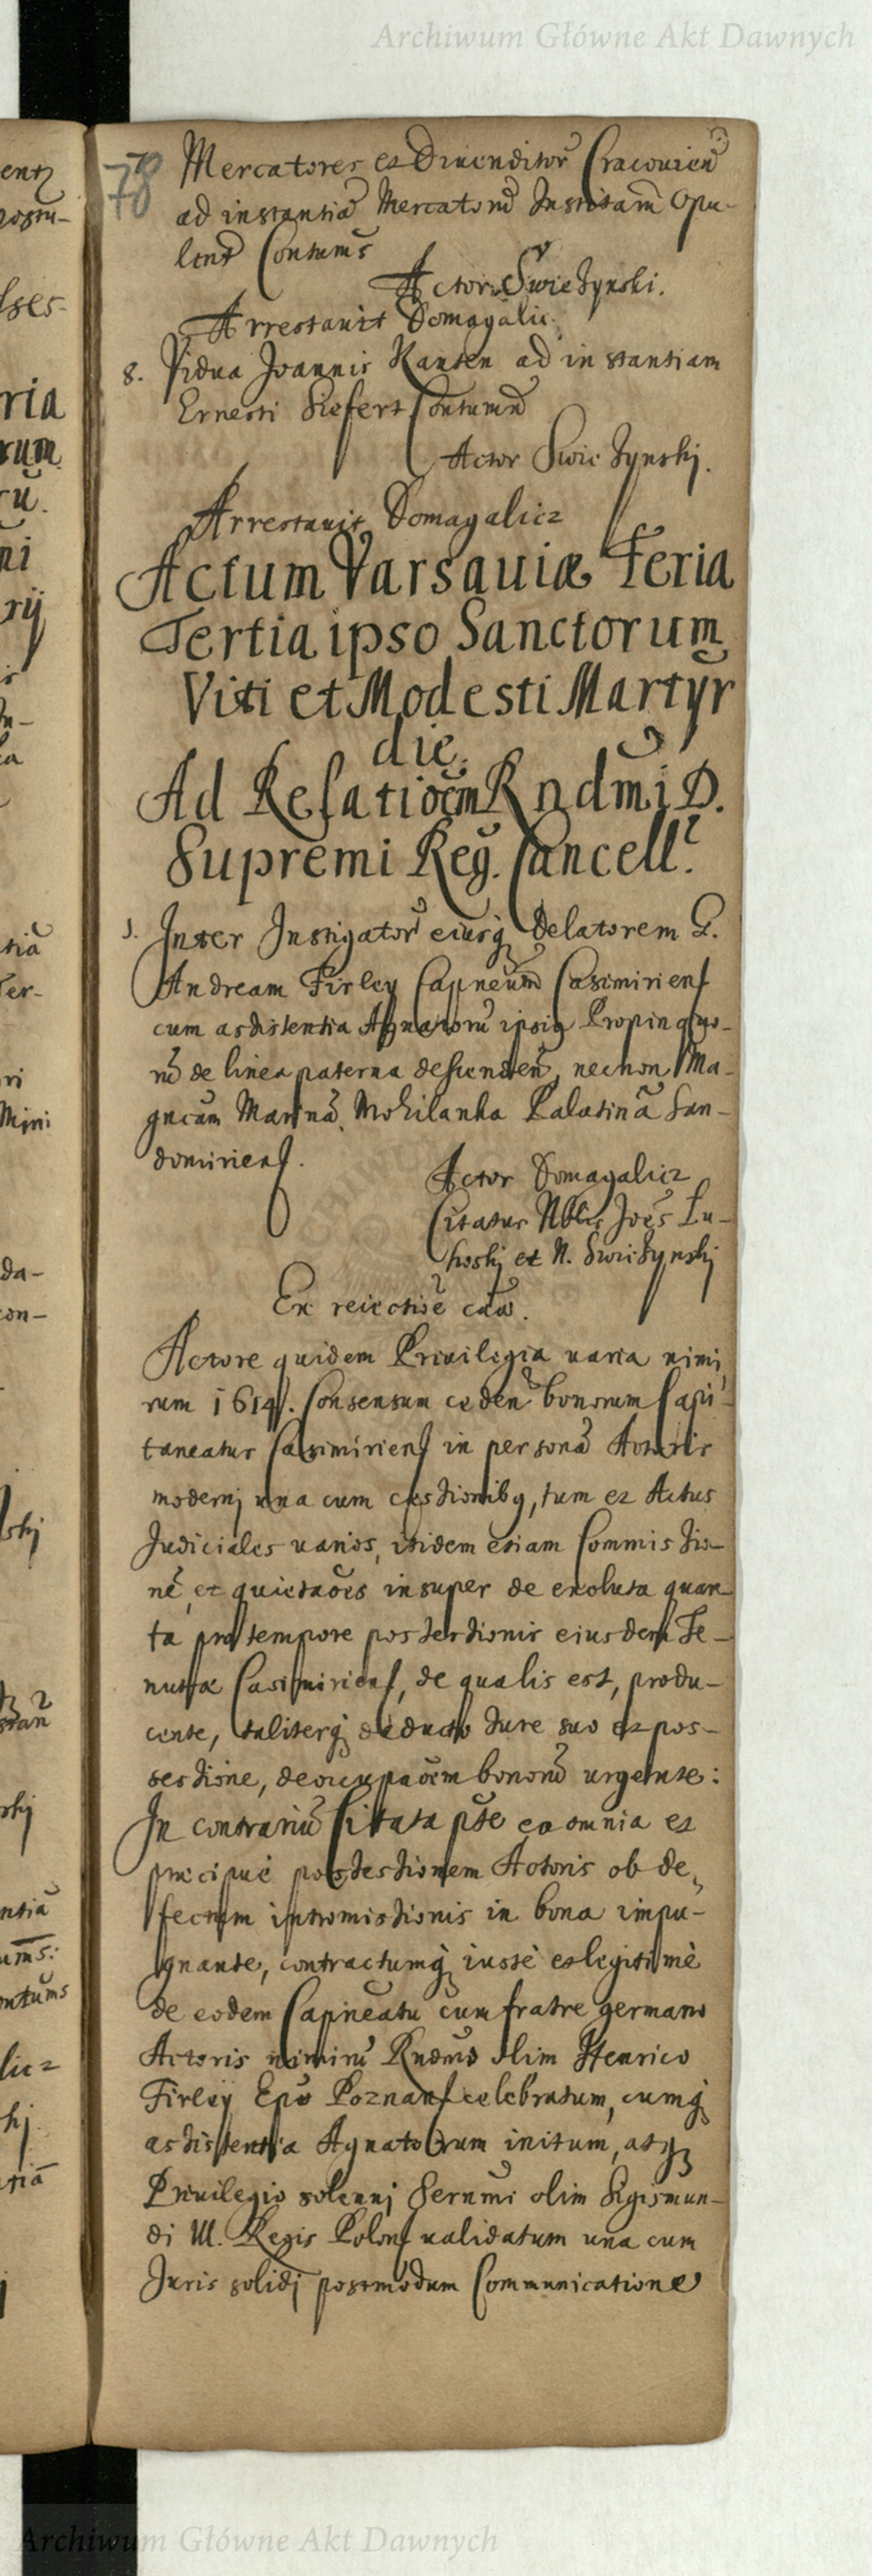 Archiwum Główne Akt Dawnych
78
Mercatores et Diuenditor̃ Cracouien̄
ad instantiã Mercatorũ Institam̃ Opu-
lent̃ Contum̃s
Actor Swieżynski.
Arrestauit Domagalic
8. Vidua Joannis Kanten ad instantiam
Ernesti Siefert Contumã
Actor Swieżynskj.
Arrestauit Domagalicz
Actum Varsauiæ Feria
Tertia ipso Sanctorum
Viti et Modesti Martyr̃
die.
Ad Relatioẽm Rndm̃i D.
Supremi Reg. Cancell.
1. Inter Instigator̃ eiusq̢ Delatorem G.
Andream Firley Capneum̃ Casimirien̄
cum assistentia Agnatorũ ipsiꝯ Propinquo-
rũ de linea paterna descenden̄, necnon Ma-
gncam̃ Marinã Mohilanka Palatinã San-
domirien̄.
Actor Domagalicz
Citatus Nblis Joẽs Lu-
koskj et N. Swieżynskj
Ex reiectiõe cãu.
Actore quidem Priuilegia uaria nimi
rum 1614. Consensum ceden̄ bonorum Capi-
taneatus Casimirien̄ in personã Actoris
modernj una cum cessionibꝯ, tum et Actus
Judiciales uarios, itidem etiam Commissio-
nẽ, et quietaões insuper de exoluta quar-
ta pro tempore possessionis eiusdem Te-
nutæ Casimirien̄, de qualis est, produ-
cente, taliterq̢ deducto Iure suo et pos-
sessione, deoccupaõem bonorũ urgente:
In contrariũ Citata pñte ea omnia et
præcipuè possessionem Actoris ob de,
fectum intromissionis in bona impu-
gnante, contractumq̢ iustè et legitimè
de eodem Capneatu cum fratre germano
Actoris nimirũ Rndmo olim Henrico
Firley Epõ Poznan̄ celebratum, cumq̢
assistentia Agnatorum initum, atq̢
Priuilegio solennj Sernmi olim Sigismun-
di III. Regis Polon̄ ualidatum una cum
Juris solidj postmodum Communicatione
Archiwum Główne Akt Dawnych